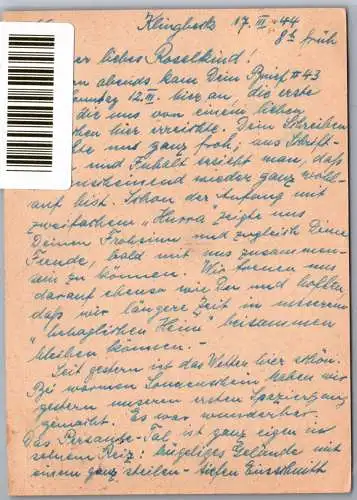 Klingbeck 17. III. 44
8h früh
er liebes Roselkind!
n abends kam Dein Brief #43
Sonntag 12. III. hier an, die erste
die uns von einem lieben
chen hier erreichte. Dein Schreiben
te uns ganz froh; aus Schrift-
und Inhalt ersieht man, daß
nscheinend wieder ganz wohl-
auf bist. Schon der Anfang mit
zweifachem "Hurra" zeigte uns
Deinen Frohsinn und zugleich Deine
Freude, bald mit uns zusammen-
sein zu können. Wir freuen uns
darauf ebenso wie Du und hoffen,
daß wir längere Zeit in unserem
"behaglichen Heim" beisammen
bleiben können. -
Seit gestern ist das Wetter hier schön.
Bei warmem Sonnenschein haben wir
gestern unseren ersten Spaziergang
gemacht. Es war wunderbar.
Das Persante-Tal ist ganz eigen in
seinem Reiz: hügeliges Gelände mit
einem ganz steilen - tiefen Einschnitt